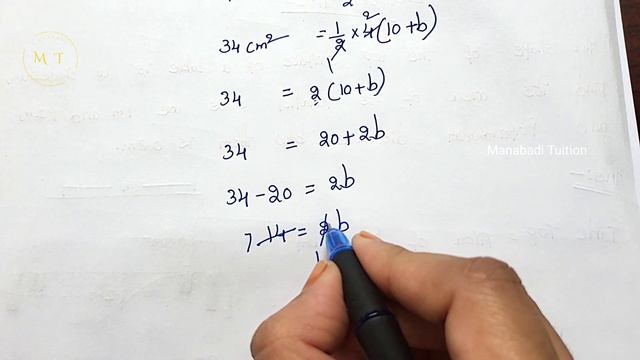 2
34 cm² = 1/2 × 4 2 (10 + b)
1
34 = 2 (10 + b)
34 = 20 + 2b
34 - 20 = 2b
7 14 = 2b
1
M T
Manabadi Tuition